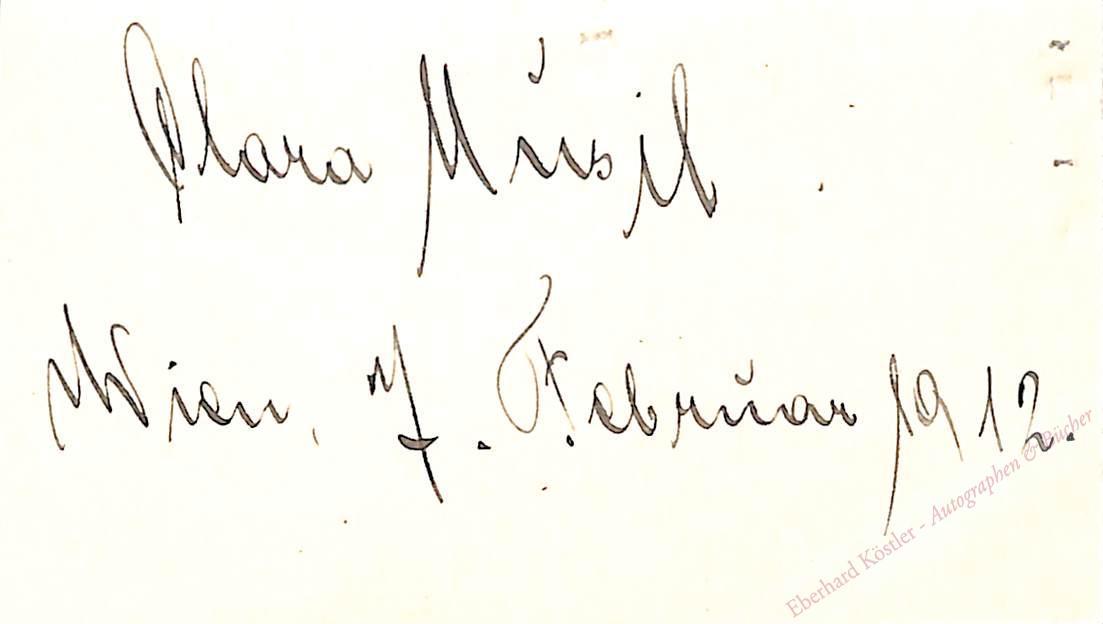 Clara Musil
Wien, 7. Februar 1912.
Eberhard Köstler - Autographen & Bücher